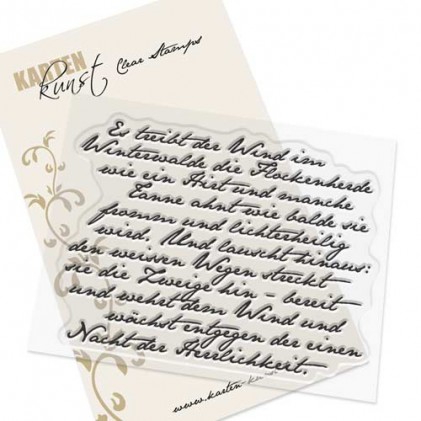 KARTEN
Kunst Clear Stamps
Es treibt der Wind im
Winterwalde die Flockenherde
wie ein Hirt und manche
Tanne ahnt wie balde sie
fromm und lichterheilig
wird. Und lauscht hinaus:
den weissen Wegen streckt
sie die Zweige hin - bereit
und wehrt dem Wind und
wächst entgegen der einen
Nacht der Herrlichkeit.